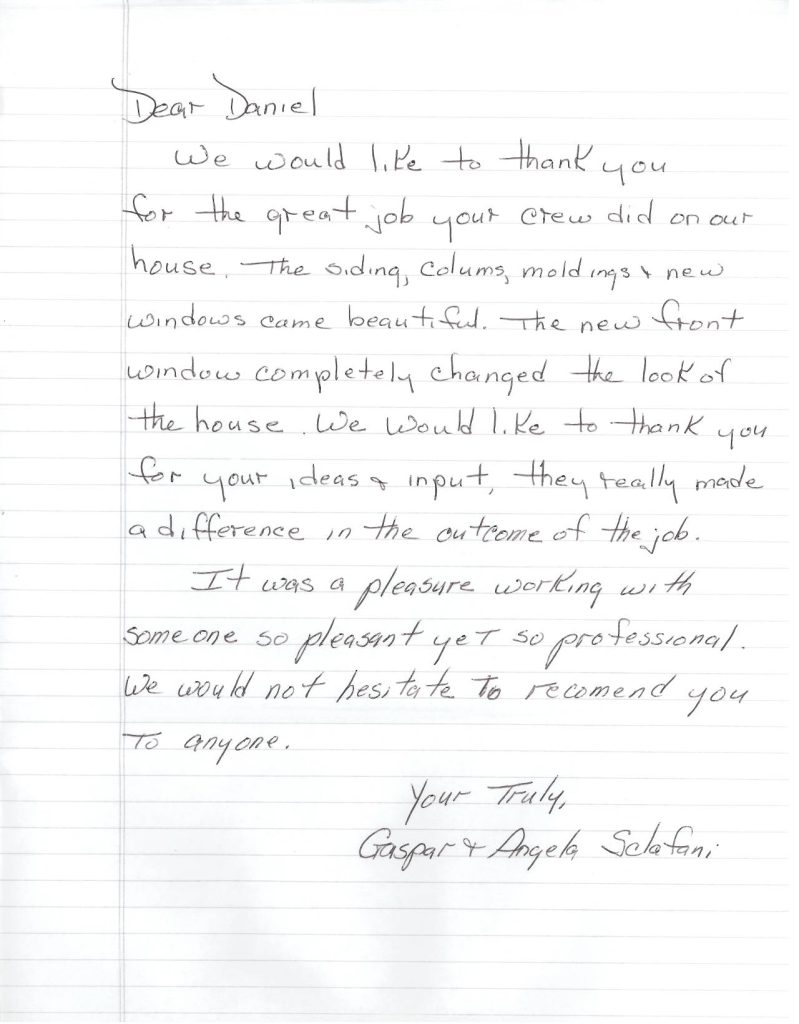 Dear Daniel
We would like to thank you
for the great job your crew did on our
house. The siding, colums, moldings & new
windows came beautiful. The new front
window completely changed the look of
the house. We would like to thank you
for your ideas & input, they really made
a difference in the outcome of the job.
It was a pleasure working with
someone so pleasant yet so professional.
We would not hesitate to recomend you
to anyone.
Your Truly,
Gaspar & Angela Sclafani